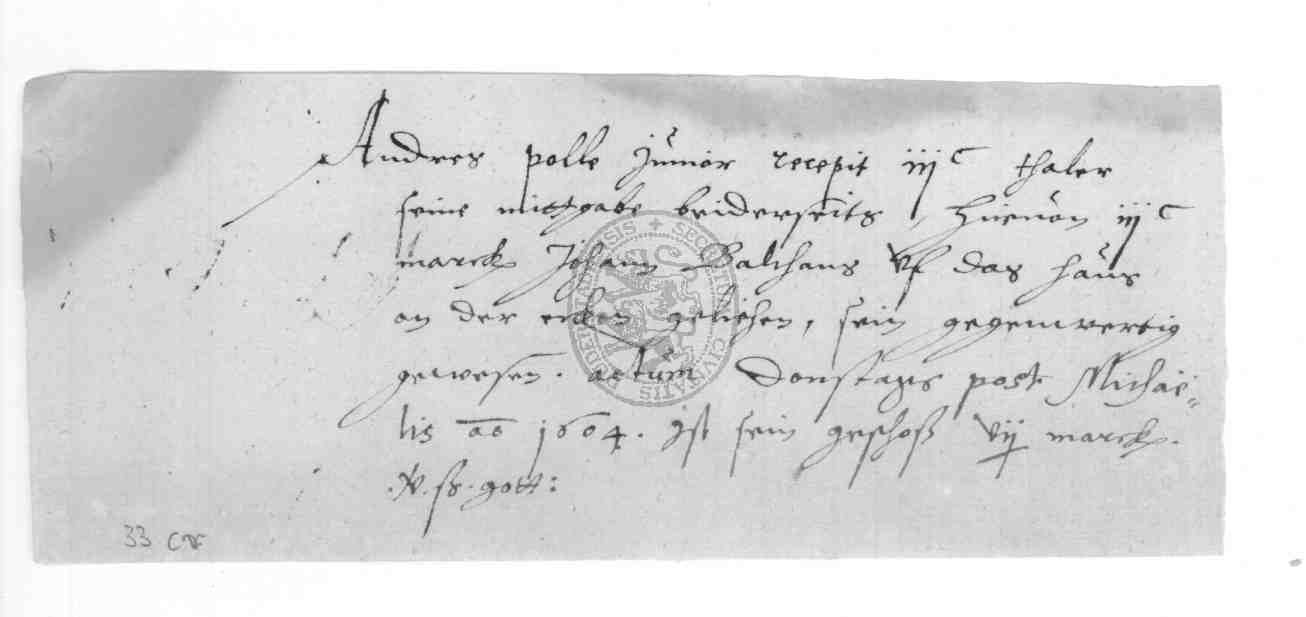 Andres polle Junior recepit iij c thaler
seine mittgabe beiderseits, hieuon iij c
marck Johann Balthaus vf das haus
an der ecken geliehen, sein gegenwertig
gewesen. actum Donstags post Michaë=
lis ao 1604. Ist sein geschoß vij marck.
.v. ß. gott:
33